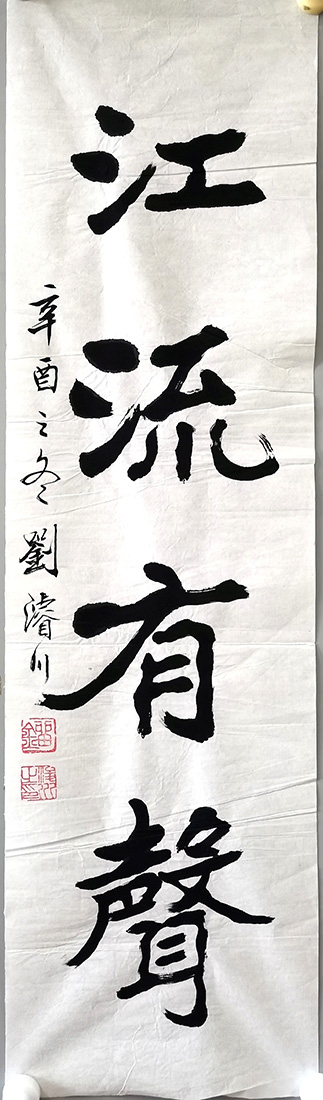 江流有聲
辛酉之冬劉濬川